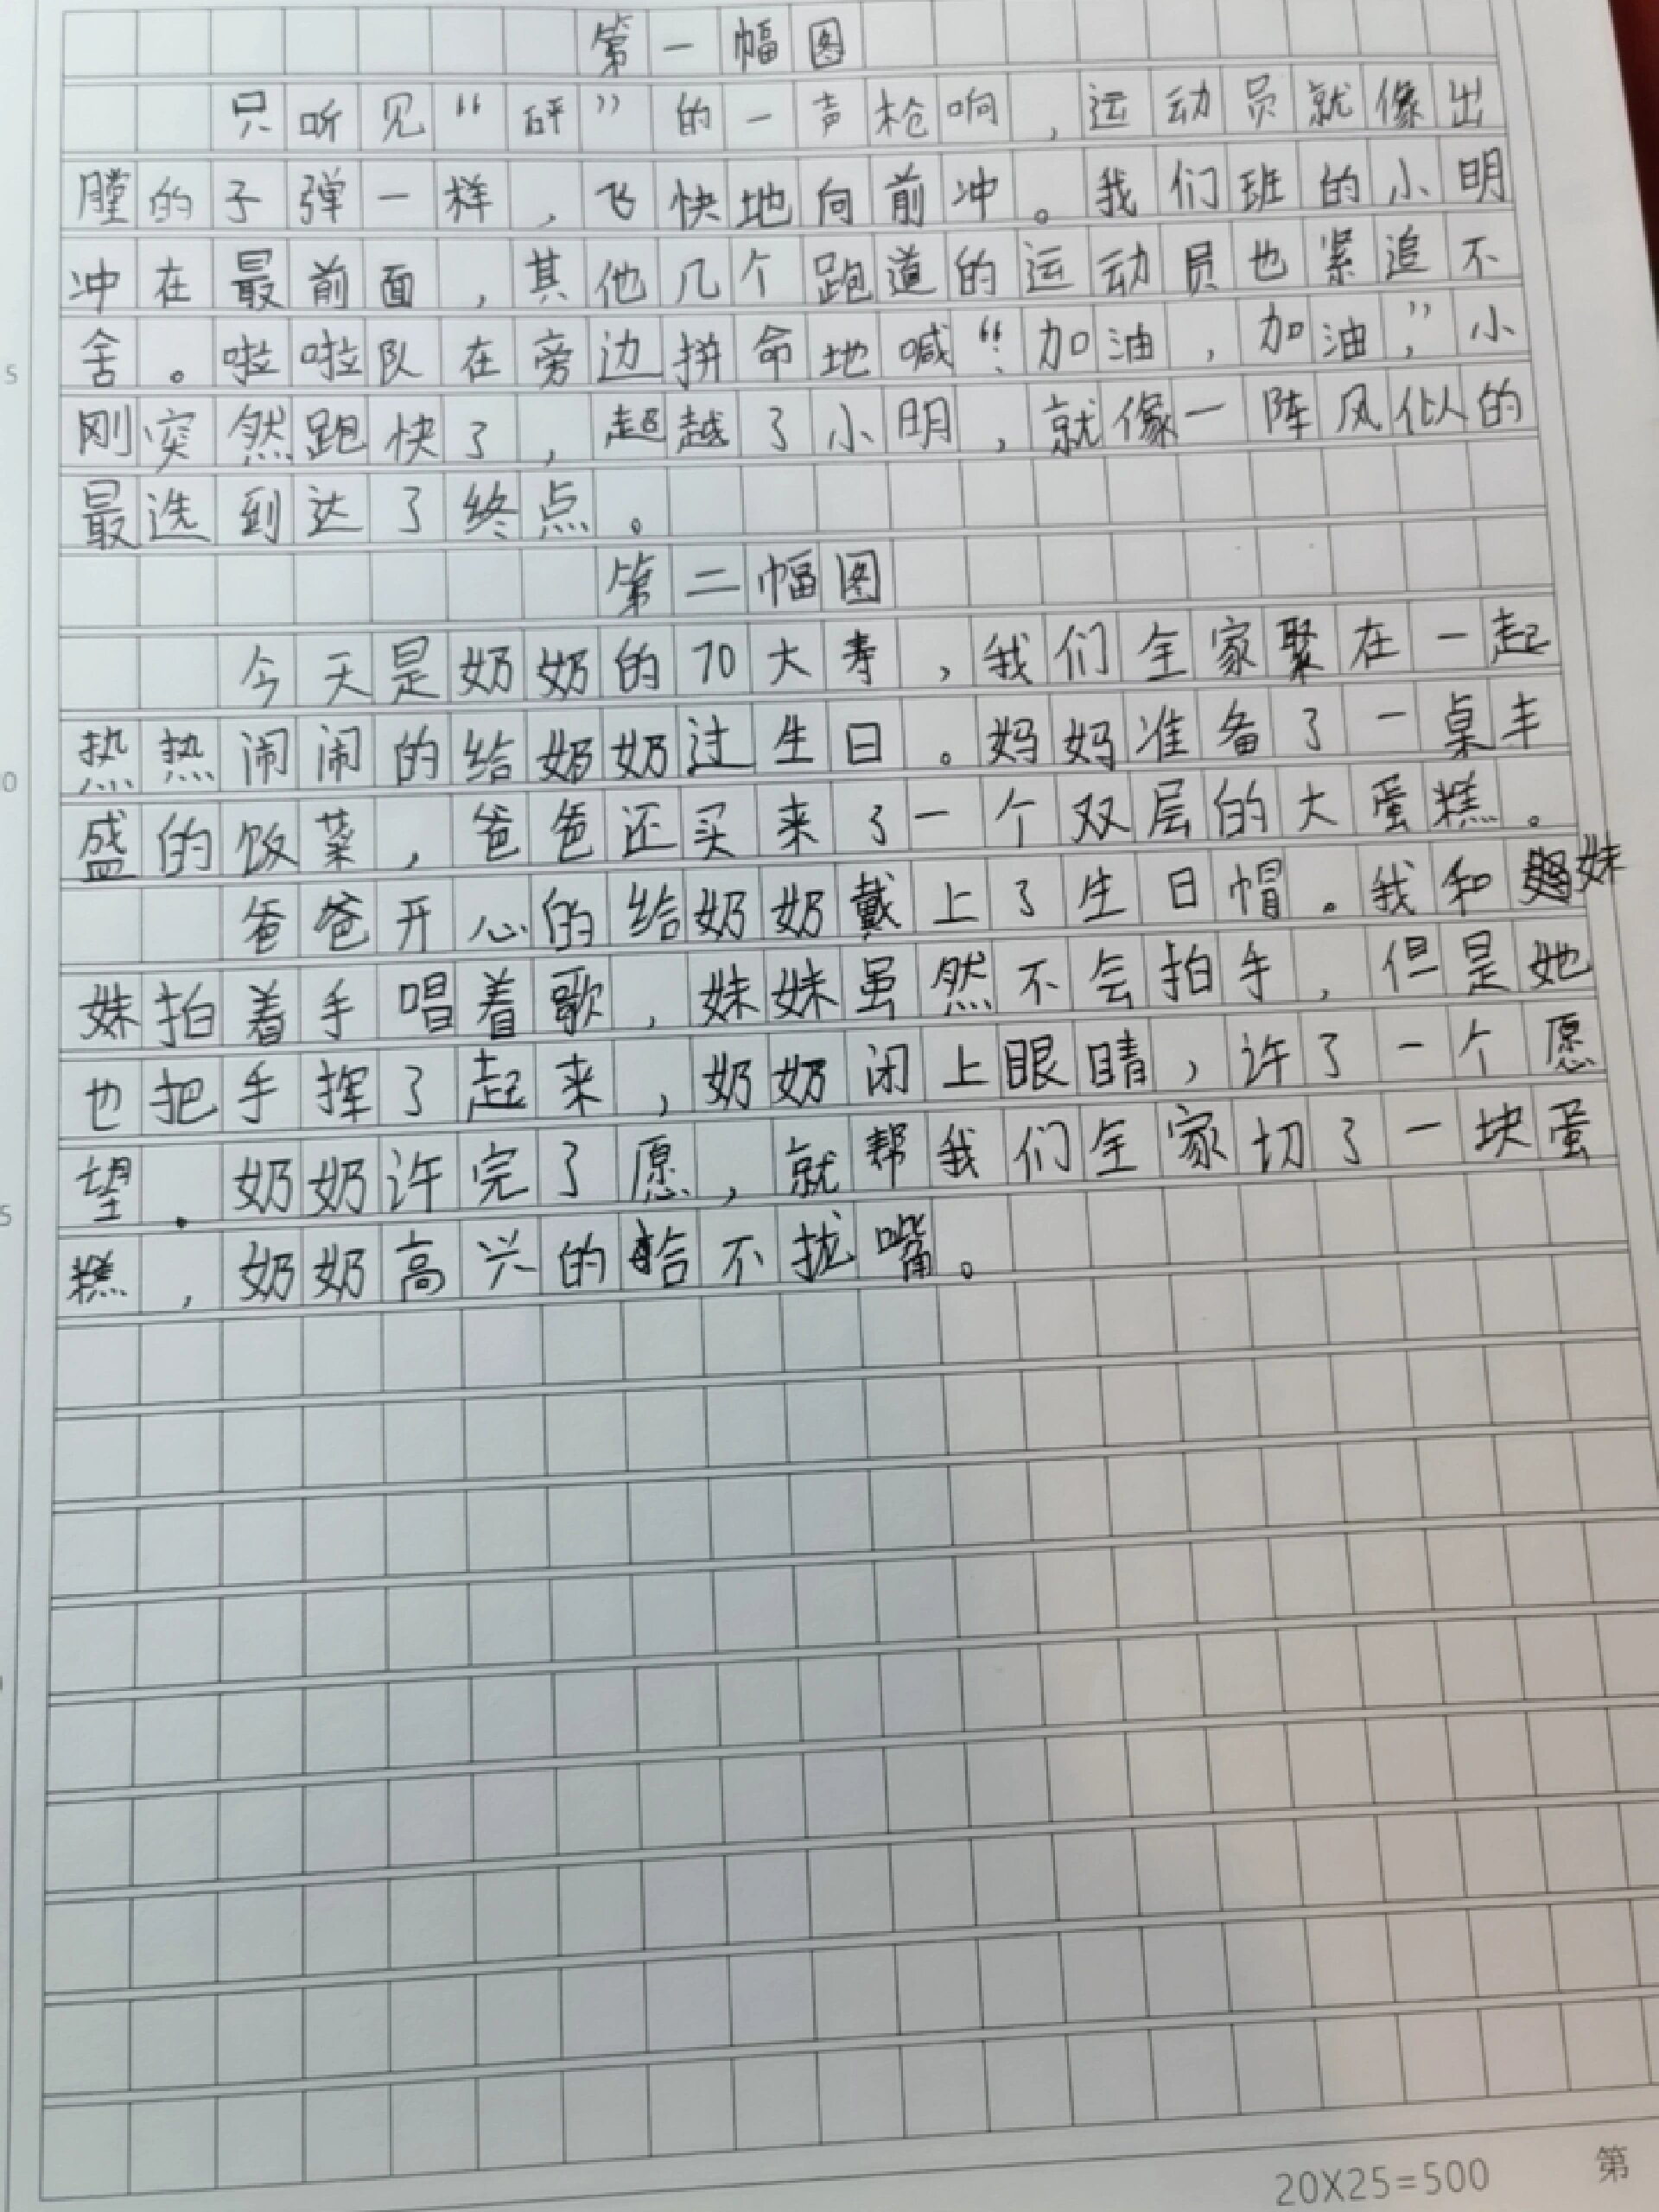 第一幅图
只听见“砰”的一声枪响，运动员就像出
膛的子弹一样，飞快地向前冲。我们班的小明
冲在最前面，其他几个跑道的运动员也紧追不
舍。啦啦队在旁边拼命地喊：“加油，加油”，小
刚突然跑快了，超越了小明，就像一阵风似的
最选到达了终点。
第二幅图
今天是奶奶的70大寿，我们全家聚在一起
热热闹闹的给奶奶过生日。妈妈准备了一桌丰
盛的饭菜，爸爸还买来了一个双层的大蛋糕。
爸爸开心的给奶奶戴上了生日帽。我和妹
妹拍着手唱着歌，妹妹虽然不会拍手，但是她
也把手挥了起来，奶奶闭上眼睛，许了一个愿
望。奶奶许完了愿，就帮我们全家切了一块蛋
糕，奶奶高兴的合不拢嘴。
20X25=500
第
5
0
5